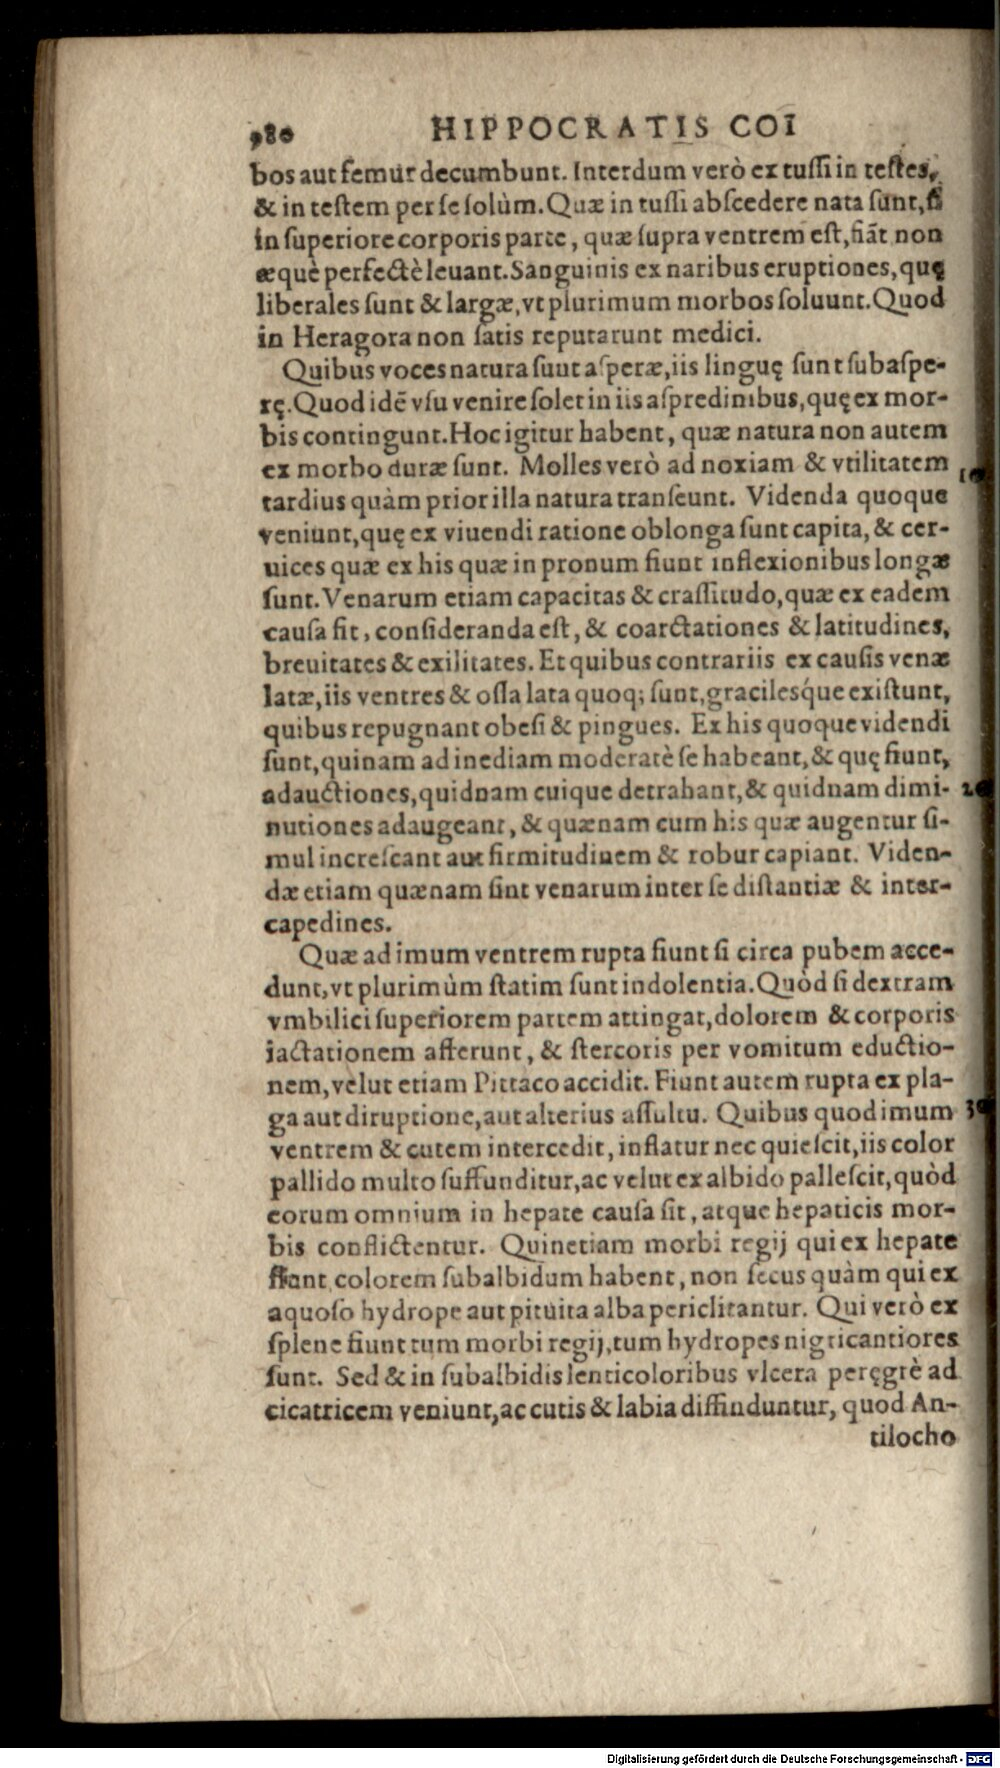 980 HIPPOCRATIS COI
bos aut femur decumbunt. Interdum verò ex tuſſi in teſtes,
& in teſtem per ſe ſolùm. Quæ in tuſſi abſcedere nata ſunt, ſi
in ſuperiore corporis parte, quæ ſupra ventrem eſt, fiāt non
æquè perfectè leuant. Sanguinis ex naribus eruptiones, quę
liberales ſunt & largæ, vt plurimum morbos ſoluunt. Quod
in Heragora non ſatis reputarunt medici.
Quibus voces natura ſuut aſperæ, iis linguę ſunt ſubaſpe-
rę. Quod idē vſu venire ſolet in iis aſpredinibus, quę ex mor-
bis contingunt. Hoc igitur habent, quæ natura non autem
ex morbo duræ ſunt. Molles verò ad noxiam & vtilitatem 10
tardius quàm prior illa natura tranſeunt. Videnda quoque
veniunt, quę ex viuendi ratione oblonga ſunt capita, & cer-
uices quæ ex his quæ in pronum fiunt inflexionibus longæ
ſunt. Venarum etiam capacitas & craſſitudo, quæ ex eadem
cauſa fit, conſideranda eſt, & coarctationes & latitudines,
breuitates & exilitates. Et quibus contrariis ex cauſis venæ
latæ, iis ventres & oſſa lata quoq; ſunt, gracileſque exiſtunt,
quibus repugnant obeſi & pingues. Ex his quoque videndi
ſunt, quinam ad inediam moderatè ſe habeant, & quę fiunt,
adauctiones, quidnam cuique detrahant, & quidnam dimi- 20
nutiones adaugeant, & quænam cum his quæ augentur ſi-
mul increſcant aut firmitudinem & robur capiant. Viden-
dæ etiam quænam ſint venarum inter ſe diſtantiæ & inter-
capedines.
Quæ ad imum ventrem rupta fiunt ſi circa pubem acce-
dunt, vt plurimùm ſtatim ſunt indolentia. Quòd ſi dextram
vmbilici ſuperiorem partem attingat, dolorem & corporis
iactationem afferunt, & ſtercoris per vomitum eductio-
nem, velut etiam Pittaco accidit. Fiunt autem rupta ex pla-
ga aut diruptione, aut alterius aſſultu. Quibus quod imum 30
ventrem & cutem intercedit, inflatur nec quieſcit, iis color
pallido multo ſuffunditur, ac velut ex albido palleſcit, quòd
eorum omnium in hepate cauſa ſit, atque hepaticis mor-
bis conflictentur. Quinetiam morbi regij qui ex hepate
fiunt colorem ſubalbidum habent, non ſecus quàm qui ex
aquoſo hydrope aut pituita alba periclitantur. Qui verò ex
ſplene fiunt tum morbi regij, tum hydropes nigricantiores
ſunt. Sed & in ſubalbidis lenticoloribus vlcera peręgrè ad
cicatricem veniunt, ac cutis & labia diffinduntur, quod An-
tilocho
Digitalisierung gefördert durch die Deutsche Forschungsgemeinschaft - DFG